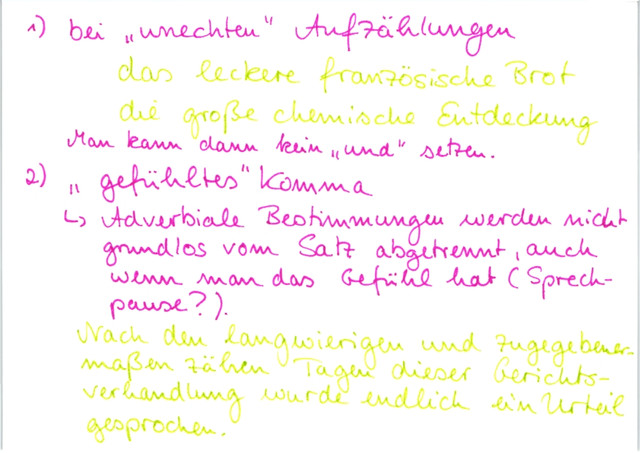 1) bei „unechten" Aufzählungen
das leckere französische Brot
die große chemische Entdeckung
Man kann dann kein „und" setzen.
2) „gefühltes" Komma
↳ Adverbiale Bestimmungen werden nicht
grundlos vom Satz abgetrennt, auch
wenn man das Gefühl hat (Sprech-
pause?).
Nach den langwierigen und zugegebener-
maßen zähen Tagen dieser Gerichts-
verhandlung wurde endlich ein Urteil
gesprochen.